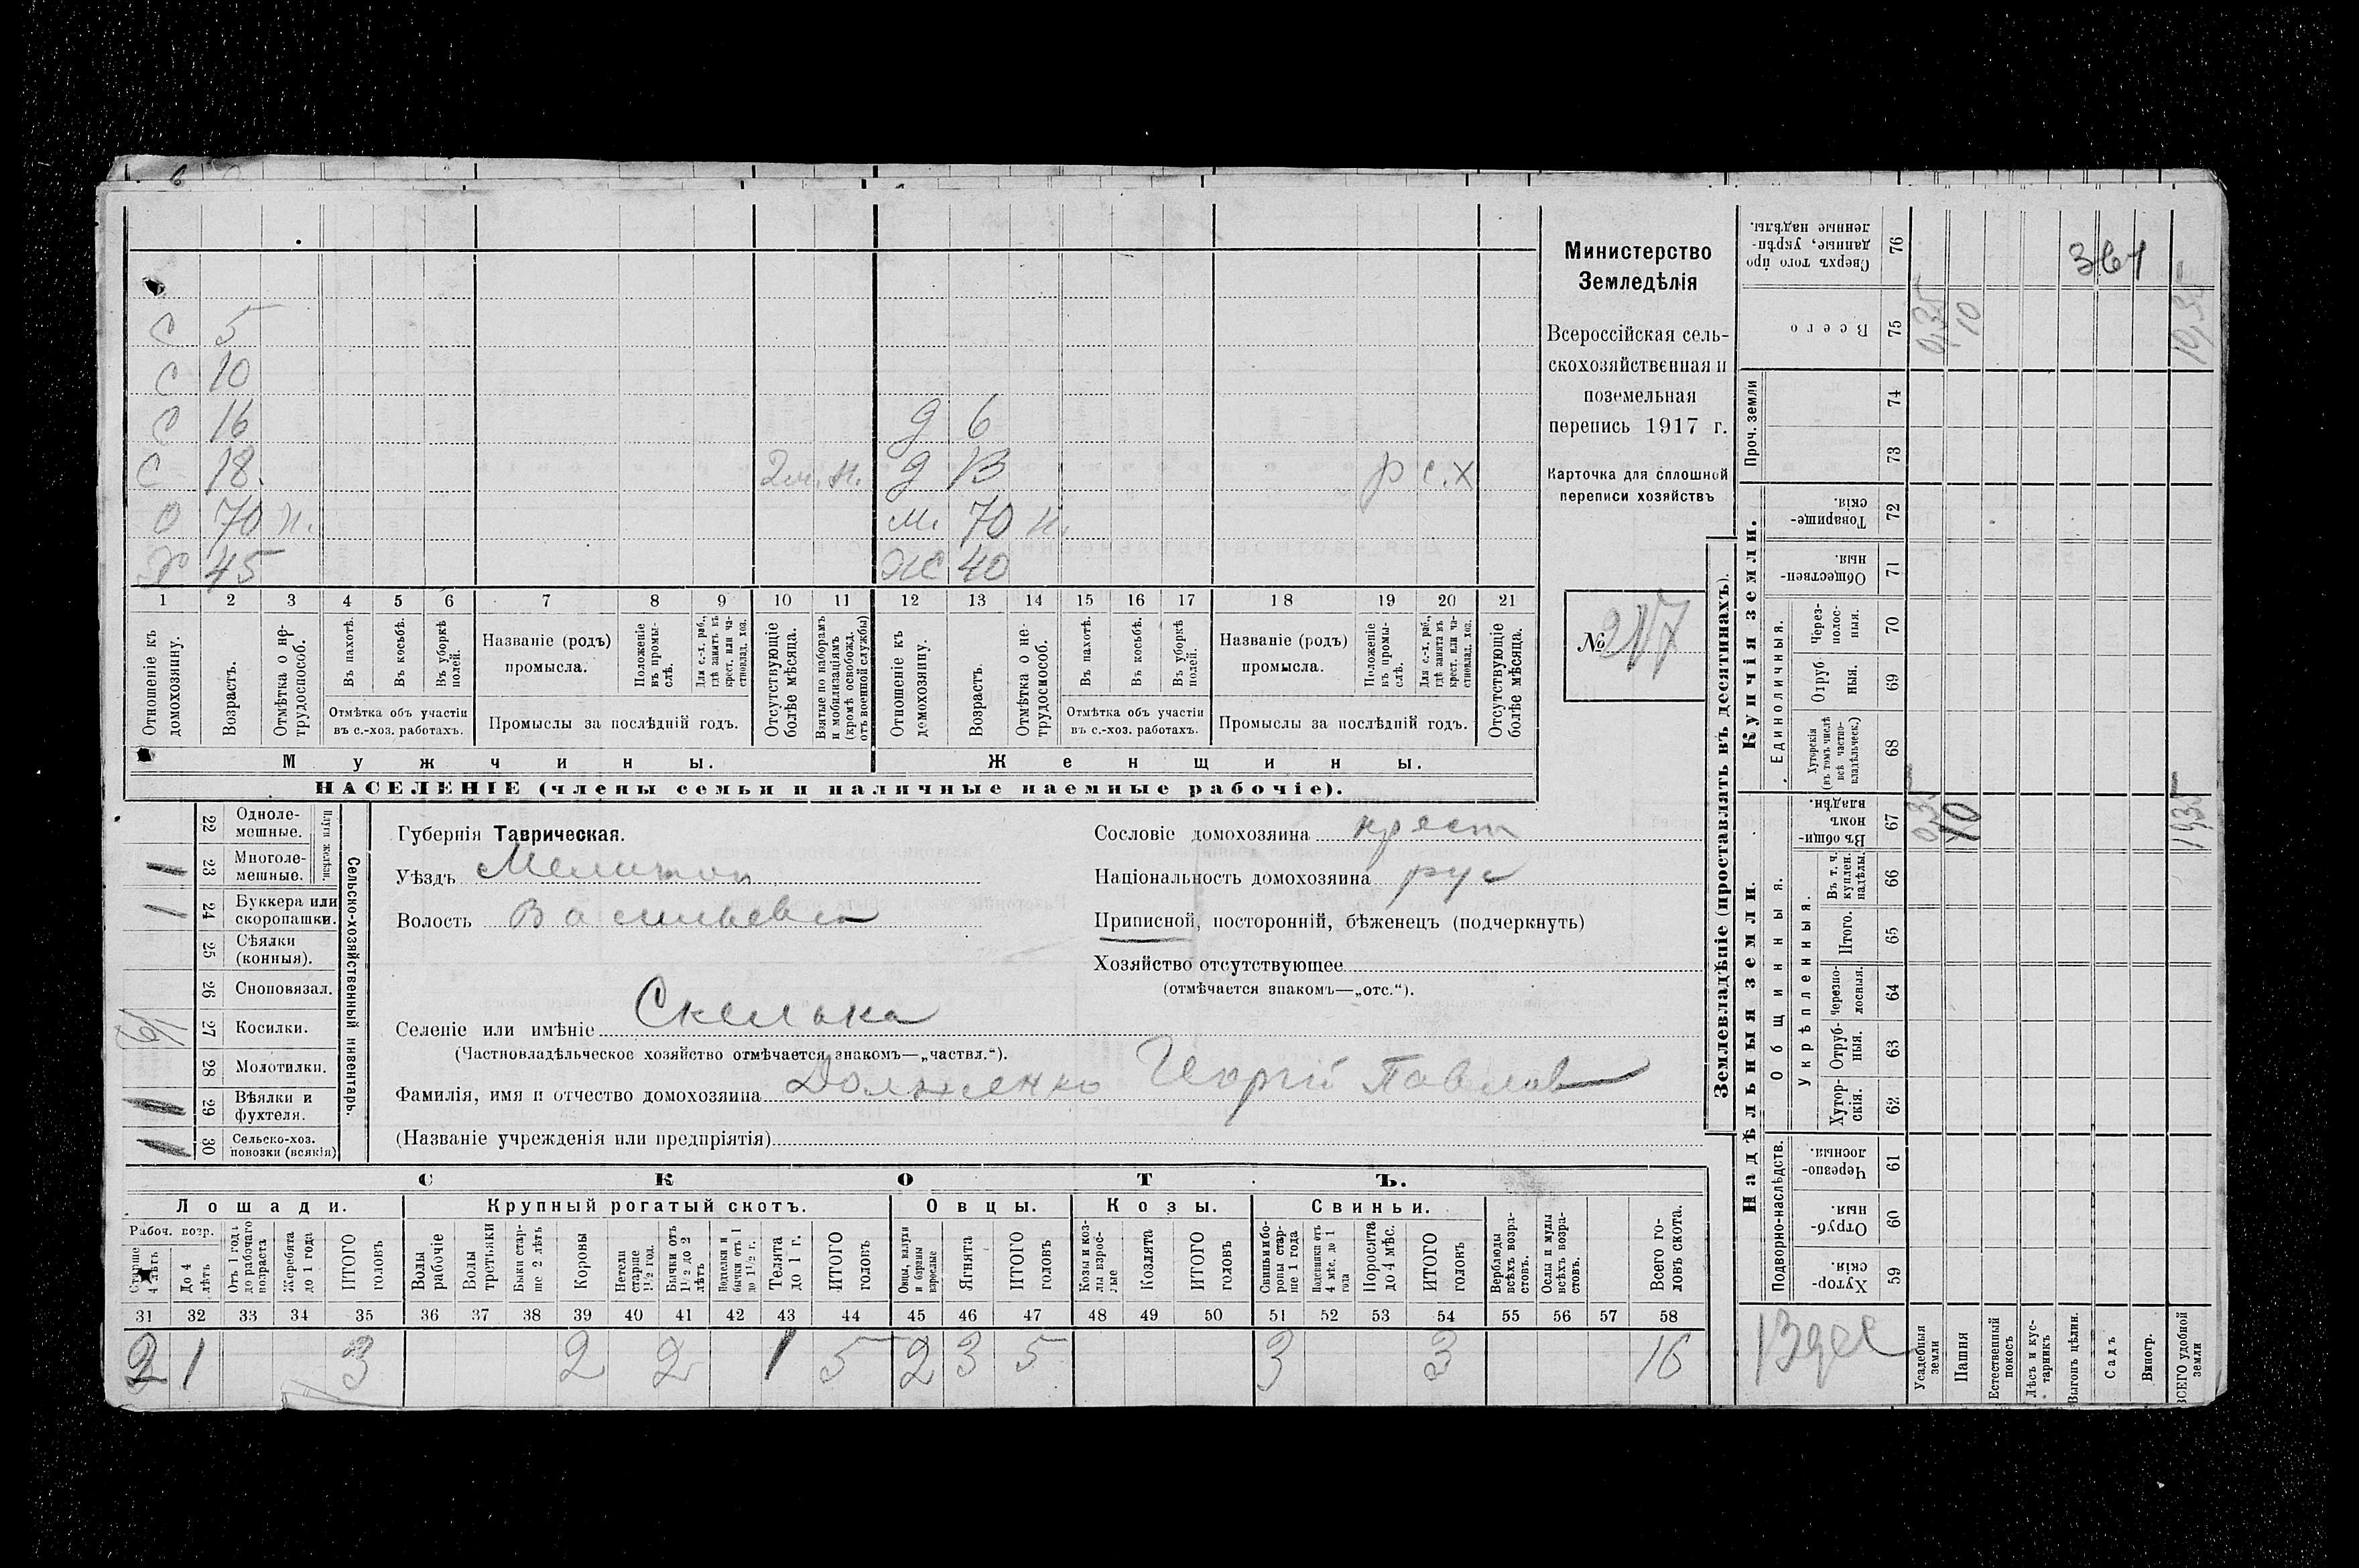 С 5
С 10
С 16 д 6
С 18. 2 м. н. д 13 р с.х
О 70 н. м. 70 н.
Х 45 ж 40
1 2 3 4 5 6 7 8 9 10 11 12 13 14 15 16 17 18 19 20 21
Отношеніе къ домохозяину.
Возрастъ.
Отмѣтка о не-трудоспособ.
Въ пахотѣ.
Въ косьбѣ.
Въ уборкѣ полей.
Отмѣтка объ участіи
въ с.-хоз. работахъ.
Названіе (родъ)
промысла.
Положеніе въ промы-слѣ.
Для с.-х. раб., гдѣ занятъ въ крест. или ча-стновлад. хоз.
Промыслы за послѣдній годъ.
Отсутствующіе болѣе мѣсяца.
Взятые по наборамъ и мобилизаціямъ (кромѣ освобожд. отъ военной службы)
Отношеніе къ домохозяину.
Возрастъ.
Отмѣтка о не-трудоспособ.
Въ пахотѣ.
Въ косьбѣ.
Въ уборкѣ полей.
Отмѣтка объ участіи
въ с.-хоз. работахъ.
Названіе (родъ)
промысла.
Положеніе въ промы-слѣ.
Для с.-х. раб., гдѣ занята въ крест. или ча-стновлад. хоз.
Промыслы за послѣдній годъ.
Отсутствующіе болѣе мѣсяца.
Мужчины. Женщины.
НАСЕЛЕНІЕ (члены семьи и наличные наемные рабочіе).
Министерство
Земледѣлія
Всероссійская сель-
скохозяйственная и
поземельная
перепись 1917 г.
Карточка для сплошной
переписи хозяйствъ
№ 217
22 Одноле-мешные.
23 Многоле-мешные. 1
Плуги желѣзн.
24 Буккера или скоропашки. 1
25 Сѣялки (конныя).
26 Сноповязал.
27 Косилки.
28 Молотилки.
29 Вѣялки и фухтеля.
30 Сельско-хоз. повозки (всякія)
Сельско-хозяйственный инвентарь.
Губернія Таврическая.
Уѣздъ Мелитоп
Волость Васильевка
Селеніе или имѣніе Скелька
(Частновладѣльческое хозяйство отмѣчается знакомъ—„частвл.“).
Фамилія, имя и отчество домохозяина Долженко Георгій Павлов
(Названіе учрежденія или предпріятія)
Сословіе домохозяина крест
Національность домохозяина рус
Приписной, посторонній, бѣженецъ (подчеркнуть)
Хозяйство отсутствующее
(отмѣчается знакомъ—„отс.“).
СКОТЪ.
Лошади. Крупный рогатый скотъ. Овцы. Козы. Свиньи.
Рабоч. возр.
Старше 4 лѣтъ
До 4 лѣтъ
Отъ 1 года до рабочаго возраста
Жеребята до 1 года
ИТОГО головъ
Волы рабочіе
Волы третьяки
Быки стар-ше 2 лѣтъ
Коровы
Нетели старше 1½ год.
Бычки отъ 1½ до 2 лѣтъ
Подтелки и бычки отъ 1 до 1½ г.
Телята до 1 г.
ИТОГО головъ
Овцы, валухи и бараны взрослые
Ягнята
ИТОГО головъ
Козы и коз-лы взрос-лые
Козлята
ИТОГО головъ
Свиньи и бо-ровы стар-ше 1 года
Подсвинки отъ 4 мѣс. до 1 года
Поросята до 4 мѣс.
ИТОГО головъ
Верблюды всѣхъ возра-стовъ.
Ослы и мулы всѣхъ возра-стовъ.
Всего го-ловъ скота.
31 32 33 34 35 36 37 38 39 40 41 42 43 44 45 46 47 48 49 50 51 52 53 54 55 56 57 58
2 1 3 2 2 1 5 2 3 5 3 3 16
Землевладѣніе (проставлять въ десятинахъ).
Купчія земли.
Надѣльныя земли.
Сверхъ того про-данные, укрѣп-ленные надѣлы. 76
Всего 75
Проч. земли 74 73
Товарище-скія. 72
Обществен-ныя. 71
Единоличныя.
Через-полос-ныя. 70
Отруб-ныя. 69
Хуторскія (въ томъ числѣ всѣ частно-владѣльческ.) 68
Общинныя.
Въ общи-нномъ владѣн. 67
Укрѣпленныя.
Въ т. ч. куплен. надѣлы. 66
Итого. 65
Черезпо-лосныя. 64
Отруб-ныя. 63
Хутор-скія. 62
Подворно-наслѣдств.
Черезпо-лосныя. 61
Отруб-ныя. 60
Хутор-скія. 59
361
0,35 10 10,35
0,35 10 10,35
Усадебныя земли
Пашня
Естественный покосъ
Лѣсъ и кус-тарникъ
Выгонъ цѣлин.
Садъ
Виногр.
ВСЕГО удобной земли